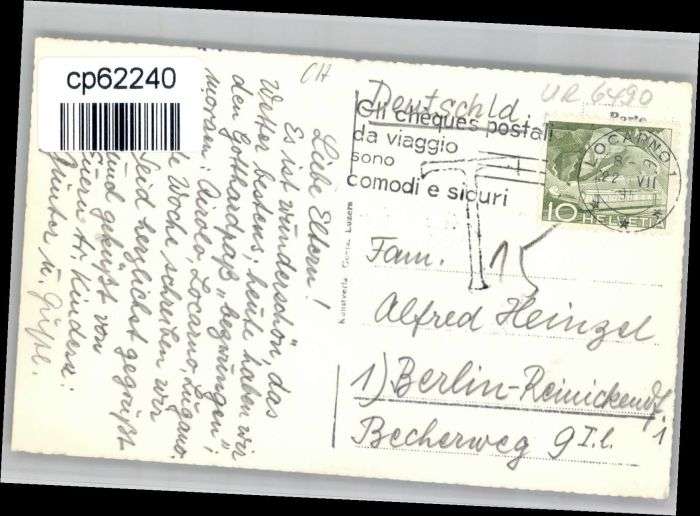 cp62240
CH
Liebe Eltern!
Es ist wunderschön, das
Wetter bestens; heute haben wir
den Gotthardpaß „bezwungen“;
morgen: Airolo, Locarno, Lugano.
Woche schreiben wir
Seid herzlichst gegrüßt
und geküßt von
Euern H. Kindern:
Günter u.
Deutschld.
UR 6490
Gli chèques postali
da viaggio
sono
comodi e sicuri
T 15
LOCARNO 1
22 VII
10 HELVETIA
Fam.
Alfred Heinzel
1) Berlin-Reinickendf. 1
Becherweg 9 I. l.